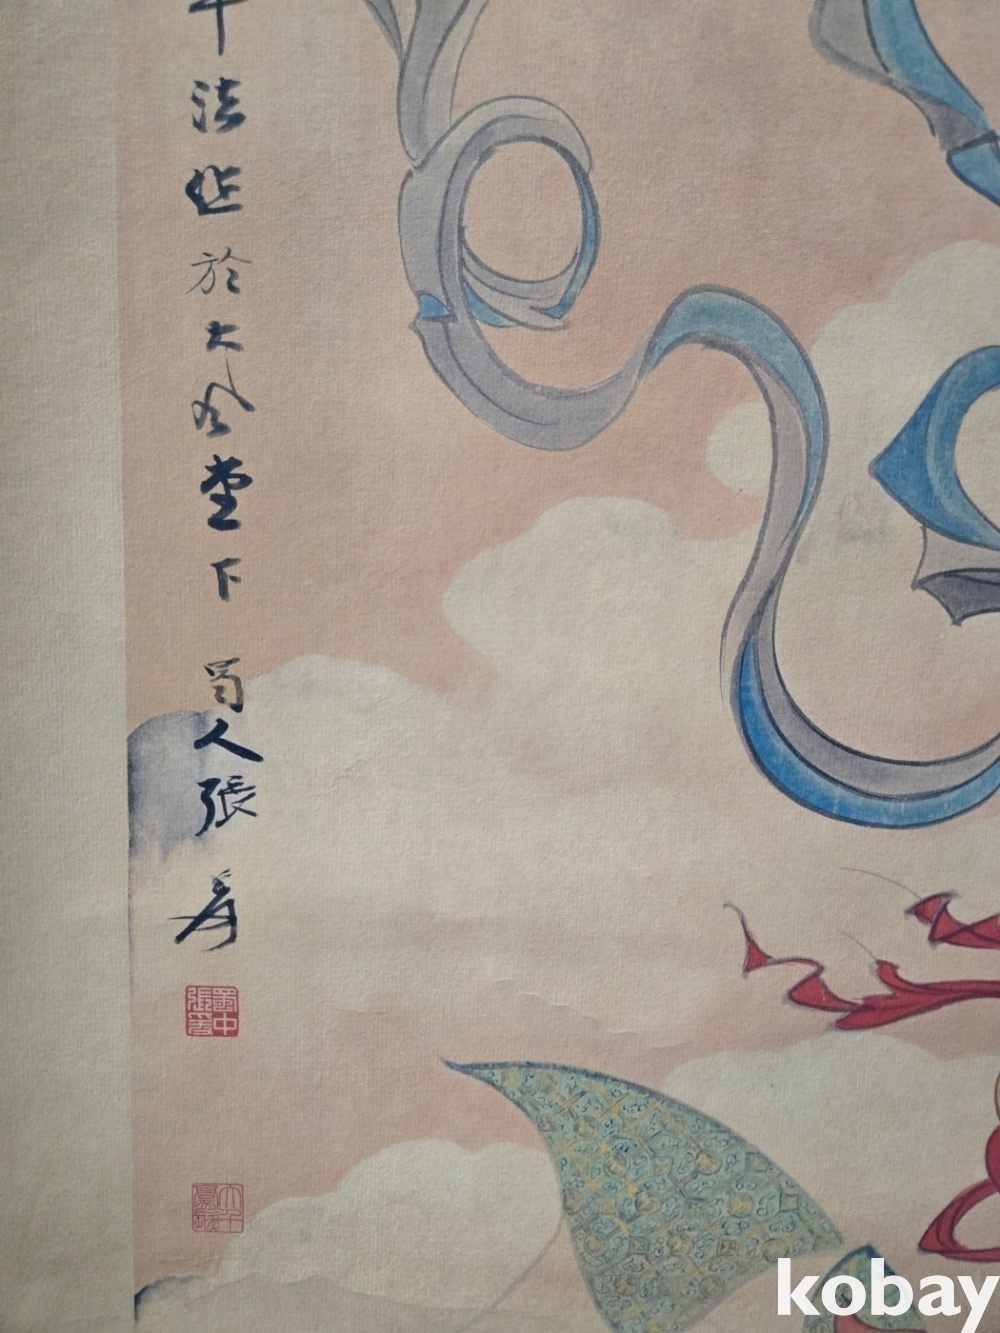 法作於大風堂下
蜀人張爰
kobay